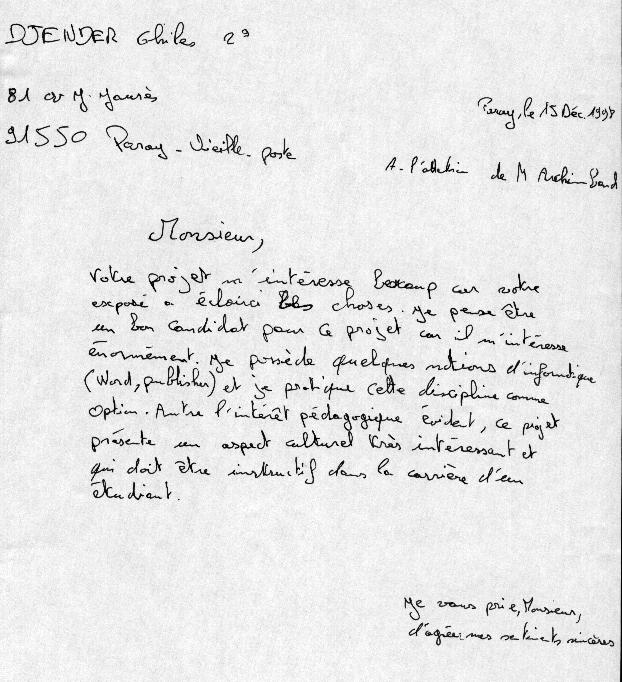 DJENDER Ghiles 2°
81 av J. Jaurès
Paray, le 15 Déc. 1998
91550 Paray - Vieille - poste
A - l'attention de M
Monsieur,
Votre projet m'intéresse beacoup car votre
exposé a éclairci les choses. Je pense être
un bon candidat pour ce projet car il m'intéresse
énormément. Je possède quelques notions d'informatique
(Word, publisher) et je pratique cette discipline comme
option. Autre l'intérêt pédagogique évident, ce projet
présente un aspect culturel très intéressant et
qui doit être instructif dans la carrière d'un
étudiant.
Je vous prie, Monsieur,
d'agréer mes sentiments sincères